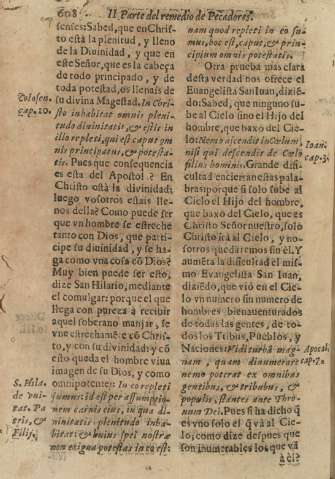 608 II. Parte del remedio de Pecadores.
senses: Sabed, que en Chris-
to està la plenitud, y lleno
de la Diuinidad, y que en
este Señor, que es la cabeça
de todo principado, y de
toda potestad, os llenais de
su divina Magestad. In Cri-
sto inhabitat omnis pleni-
tudo diuinitatis, & estis in
illo repleti, qui est caput om
nis principatus, & potesta-
tis. Pues que consequencia
es esta del Apostol? En
Christo està la divinidad;
luego vosotros estais lle-
nos della? Como puede ser
que vn hombre se estreche
tanto con Dios, que parti-
cipe su diuinidad, y se ha-
ga como vna cosa cõ Dios?
Muy bien puede ser esto,
dize San Hilario, mediante
el comulgar: porque el que
llega con pureza à recibir
aquel soberano manjar, se
vne estrechamẽte cõ Chris-
to, y con su divinidad: y cõ
esto queda el hombre viua
imagen de su Dios, y como
omnipotente: In eo repleti
sumus: id est per assumptio-
nem carnis eius, in qua di-
uinitatis plenitudo inha-
bitat: & huius spei nostræ
non exigua potestas in eo est:
Colosen.
cap. 10.
S. Hila.
de vni-
tat. Pa
tris, &
Filij.
nam quod repleti in eo su-
mus, hoc est, caput, & prin-
cipium omnis potestatis.
Otra prueba mas clara
desta verdad nos ofrece el
Euangelista San Iuan, dizië-
do: Sabed, que ninguno su-
be al Cielo sino el Hijo del
hombre, que baxo del Cie-
lo: Nemo ascendit in Cœlum,
nisi qui descendit de Cœlo
filius hominis. Grande difi-
cultad encierran estas pala-
bras: porque si solo sube al
Cielo el Hijo del hombre,
que baxò del Cielo, que es
Christo Señor nuestro, solo
Christo irà al Cielo, y no-
otros quedaremos sin èl. Y
aumẽta la dificultad el mis-
mo Euangelista San Iuan,
diziẽdo, que viò en el Cie-
lo vn numero sin numero de
hombres bienauenturados
de todas las gentes, de to-
dos los Tribus, Pueblos, y
Naciones: Vidi turbã mag-
nam, quam dinumerare
nemo poterat ex omnibus
gentibus, & tribubus, &
populis, stantes ante Thro-
num Dei. Pues si ha dicho q̃
es vno solo el q̃ và al Cie-
lo, como dize despues que
son inumerables los que vã
Ioan.
cap. 3.
Apocal.
cap. 7.